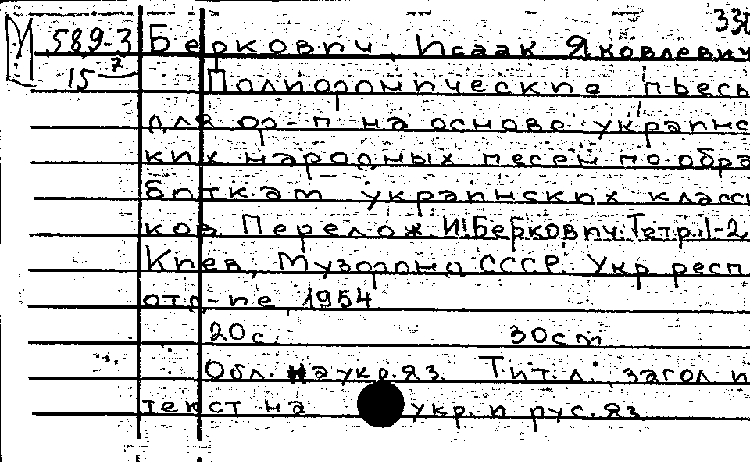 М 589-3 Беркович, Исаак Яковлевич
15 7 Полифонические пьесы
для ф-п на основе украинс
ких народных песен по обра
боткам украинских класси
ков Перелож. И. Беркович. Тетр. 1-2
Киев, Музфонд СССР. Укр респ
отд-ние, 1954
20 с. 30 см
Обл. на укр. яз. Тит. л., загол и
текст на укр. и рус. яз